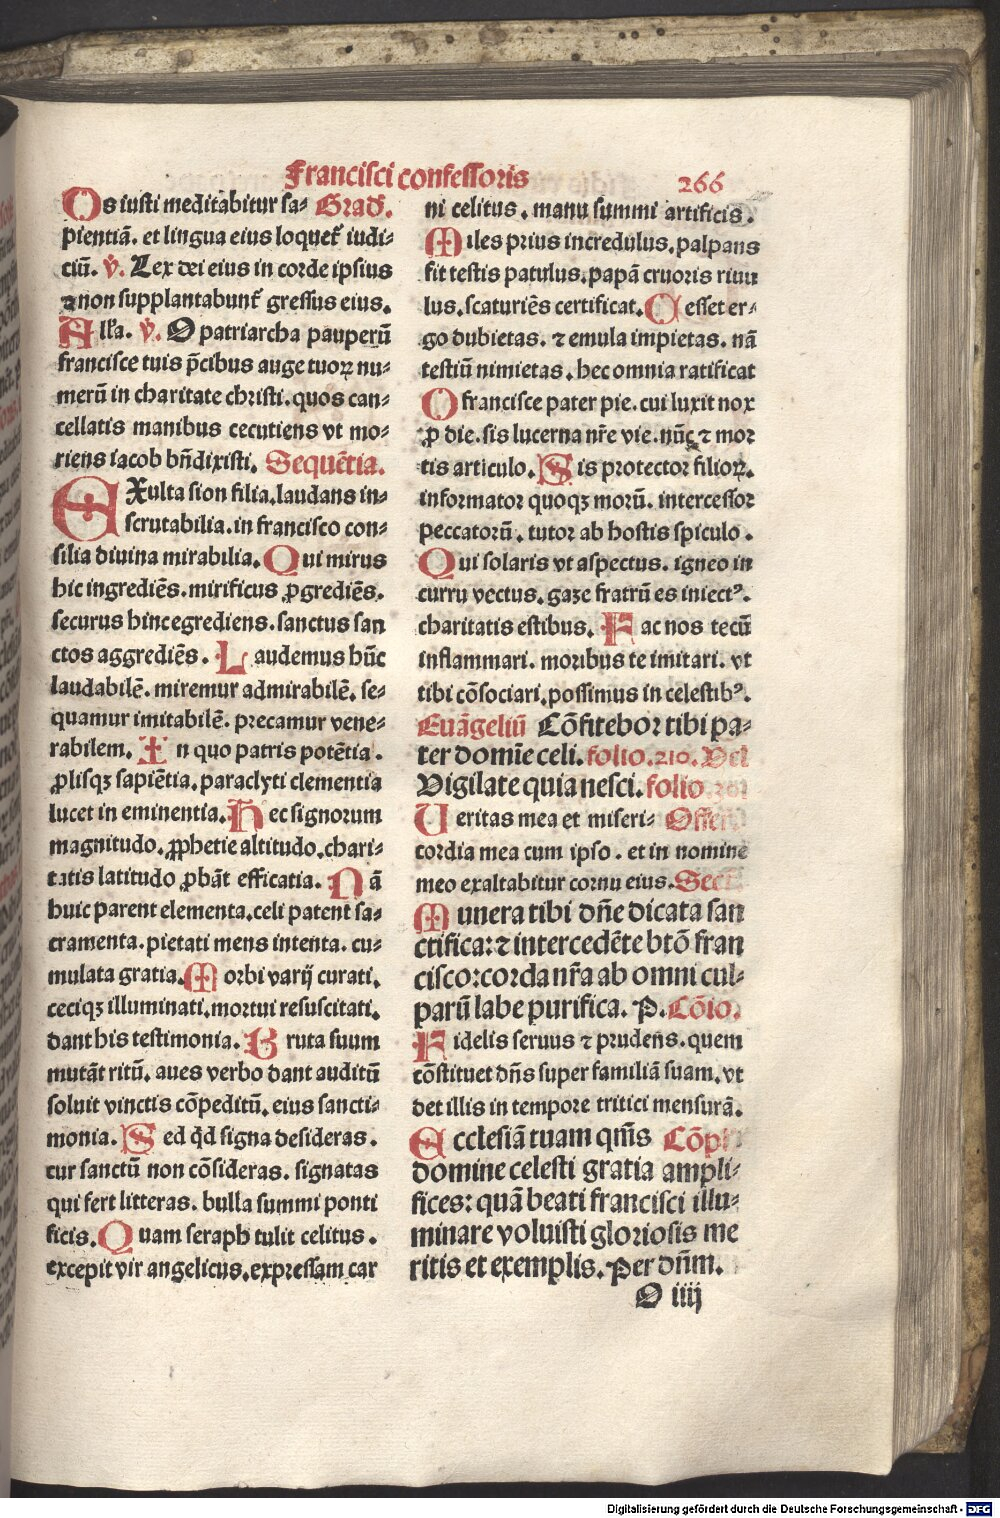 Francisci confessoris
266
Os iusti meditabitur sa⸗ Grad.
pientiā. et lingua eius loquet᷑ iudi⸗
ciū. ℣. Lex dei eius in corde ipsius
⁊ non supplantabunt᷑ gressus eius.
Alľa. ℣. O patriarcha pauperū
francisce tuis p̄cibus auge tuoꝝ nu⸗
merū in charitate christi. quos can⸗
cellatis manibus cecutiens vt mo⸗
riens iacob bn̄dixisti. Sequētia.
EXulta sion filia. laudans in⸗
scrutabilia. in francisco con⸗
silia diuina mirabilia. Qui mirus
hic ingrediēs. mirificus ꝓgrediēs.
securus hinc egrediens. sanctus san
ctos aggrediēs. Laudemus hūc
laudabilē. miremur admirabilē. se⸗
quamur imitabilē. precamur vene⸗
rabilem. In quo patris potētia.
ꝓlisqꝫ sapiētia. paraclyti clementia
lucet in eminentia. Hec signorum
magnitudo. ꝓphetie altitudo. chari⸗
tatis latitudo ꝓbāt efficatia. Nā
huic parent elementa. celi patent sa⸗
cramenta. pietati mens intenta. cu⸗
mulata gratia. Morbi varij curati.
ceciqꝫ illuminati. mortui resuscitati.
dant his testimonia. Bruta suum
mutāt ritū. aues verbo dant auditū
soluit vinctis cōpeditū. eius sancti⸗
monia. Sed q̇d signa desideras.
cur sanctū non cōsideras. signatas
qui fert litteras. bulla summi ponti
ficis. Quam seraph tulit celitus.
excepit vir angelicus. expressam car
ni celitus. manu summi artificis.
Miles prius incredulus. palpans
fit testis patulus. papā cruoris riuu
lus. scaturiēs certificat. Cesset er⸗
go dubietas. ⁊ emula impietas. nā
testiū nimietas. hec omnia ratificat
O francisce pater pie. cui luxit nox
ꝓ die. sis lucerna nr̄e vie. nūc ⁊ mor
tis articulo. Sis protector filioꝝ.
informator quoqꝫ morū. intercessor
peccatorū. tutor ab hostis spiculo.
Qui solaris vt aspectus. igneo in
curru vectus. gaze fratrū es iniectꝰ.
charitatis estibus. Fac nos tecū
inflammari. moribus te imitari. vt
tibi cōsociari. possimus in celestibꝰ.
Euāgeliū Cōfitebor tibi pa⸗
ter domīe celi. folio. 210. Vel
Vigilate quia nesci. folio
Ueritas mea et miseri⸗ Offer.
cordia mea cum ipso. et in nomine
meo exaltabitur cornu eius. Secr
Munera tibi dn̄e dicata san
ctifica: ⁊ intercedēte btō fran
cisco: corda nr̄a ab omni cul⸗
parū labe purifica. P. Cōio.
Fidelis seruus ⁊ prudens. quem
cōstituet dn̄s super familiā suam. vt
det illis in tempore tritici mensurā.
Ecclesiā tuam qm̄s Cōpl
domine celesti gratia ampli⸗
fices: quā beati francisci illu⸗
minare voluisti gloriosis me
ritis et exemplis. Per dn̄m.
O iiij
Digitalisierung gefördert durch die Deutsche Forschungsgemeinschaft - DFG